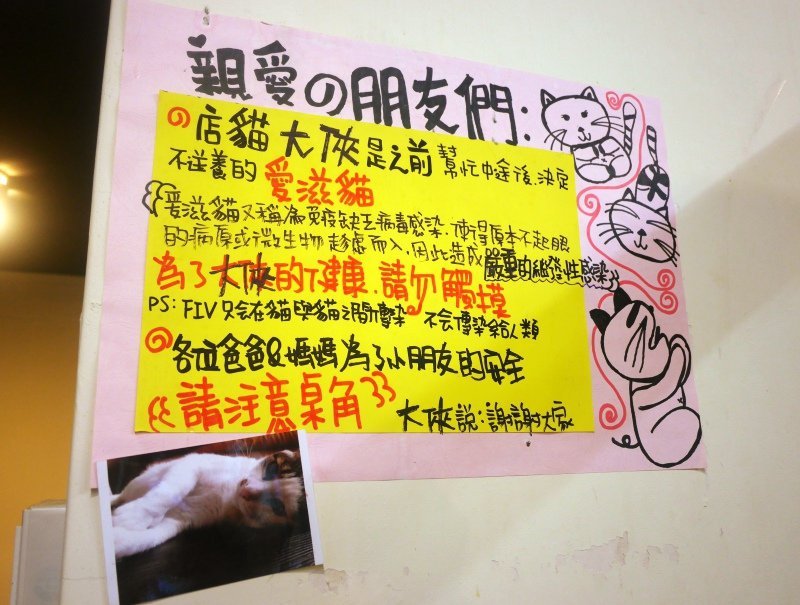 親愛の朋友們:
店貓 大俠是之前 幫忙中途後,決定
不送養的 愛滋貓
愛滋貓又稱為免疫缺乏病毒感染.使得原本不起眼
的病原或微生物 趁虛而入,因此造成嚴重的繼發性感染
為了大俠的健康.請勿觸摸
PS: FIV 只会在貓與貓之間傳染 不会傳染給人類
各位爸爸&媽媽為了小朋友的安全
請注意桌角
大俠說:謝謝大家